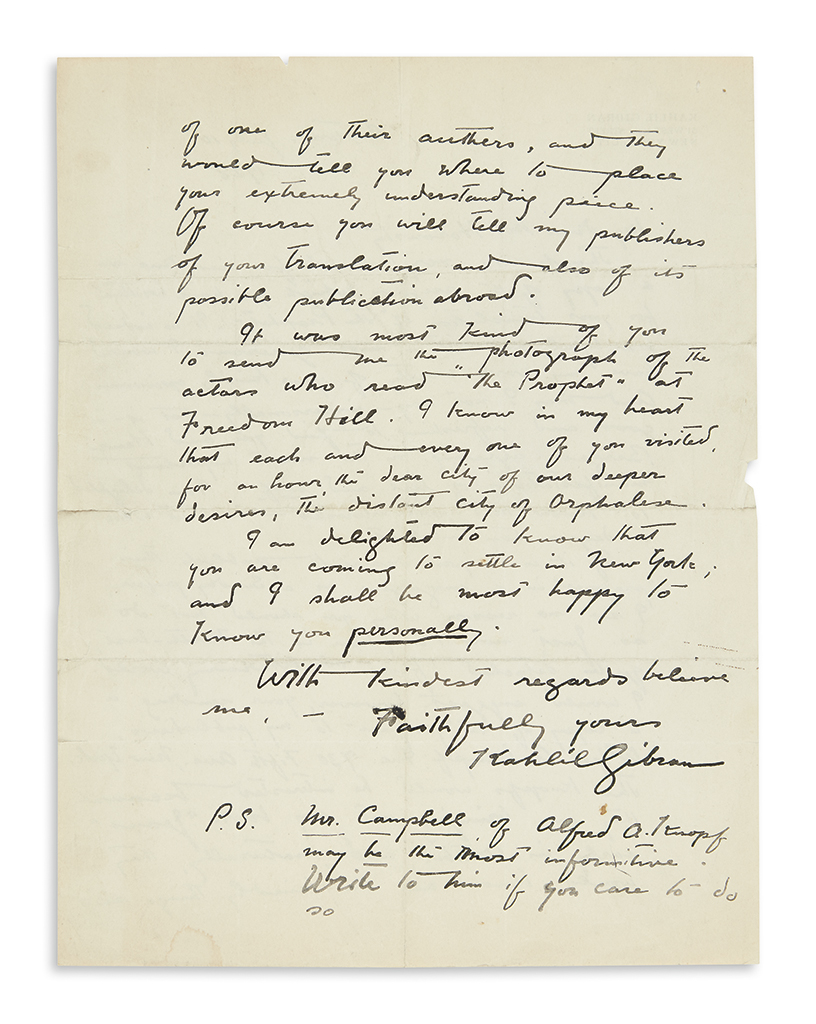 of one of their authers, and they
would tell you where to place
your extremely understanding peice.
Of course you will tell my publishers
of your translation, and also of its
possible publication abroad.
It was most kind of you
to send me the photograph of the
actors who read "The Prophet" at
Freedom Hill. I know in my heart
that each and every one of you visited,
for an hour, the dear city of our deeper
desires, the distant city of Orphalese.
I am delighted to know that
you are coming to settle in New York;
and I shall be most happy to
know you personally.
With kindest regards believe
me, —
Faithfully yours
Kahlil Gibran
P.S. Mr. Campbell of Alfred A. Knopf
may be the most informitive.
Write to him if you care to do
so